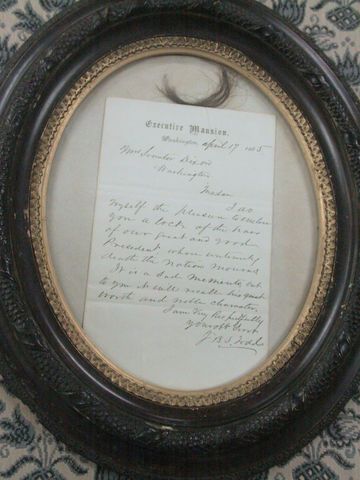 Executive Mansion,
Washington, April 17 1865
Mrs Senator Dixon
Washington
Madam I do
myself the pleasure to enclose
you a lock of the hair
of our great and good
President whose untimely
death the Nation mourns
It is a sad memento, but
to you it will recall his great
worth and noble character
I am Very Respectfully
your obt Servt
J B S Todd